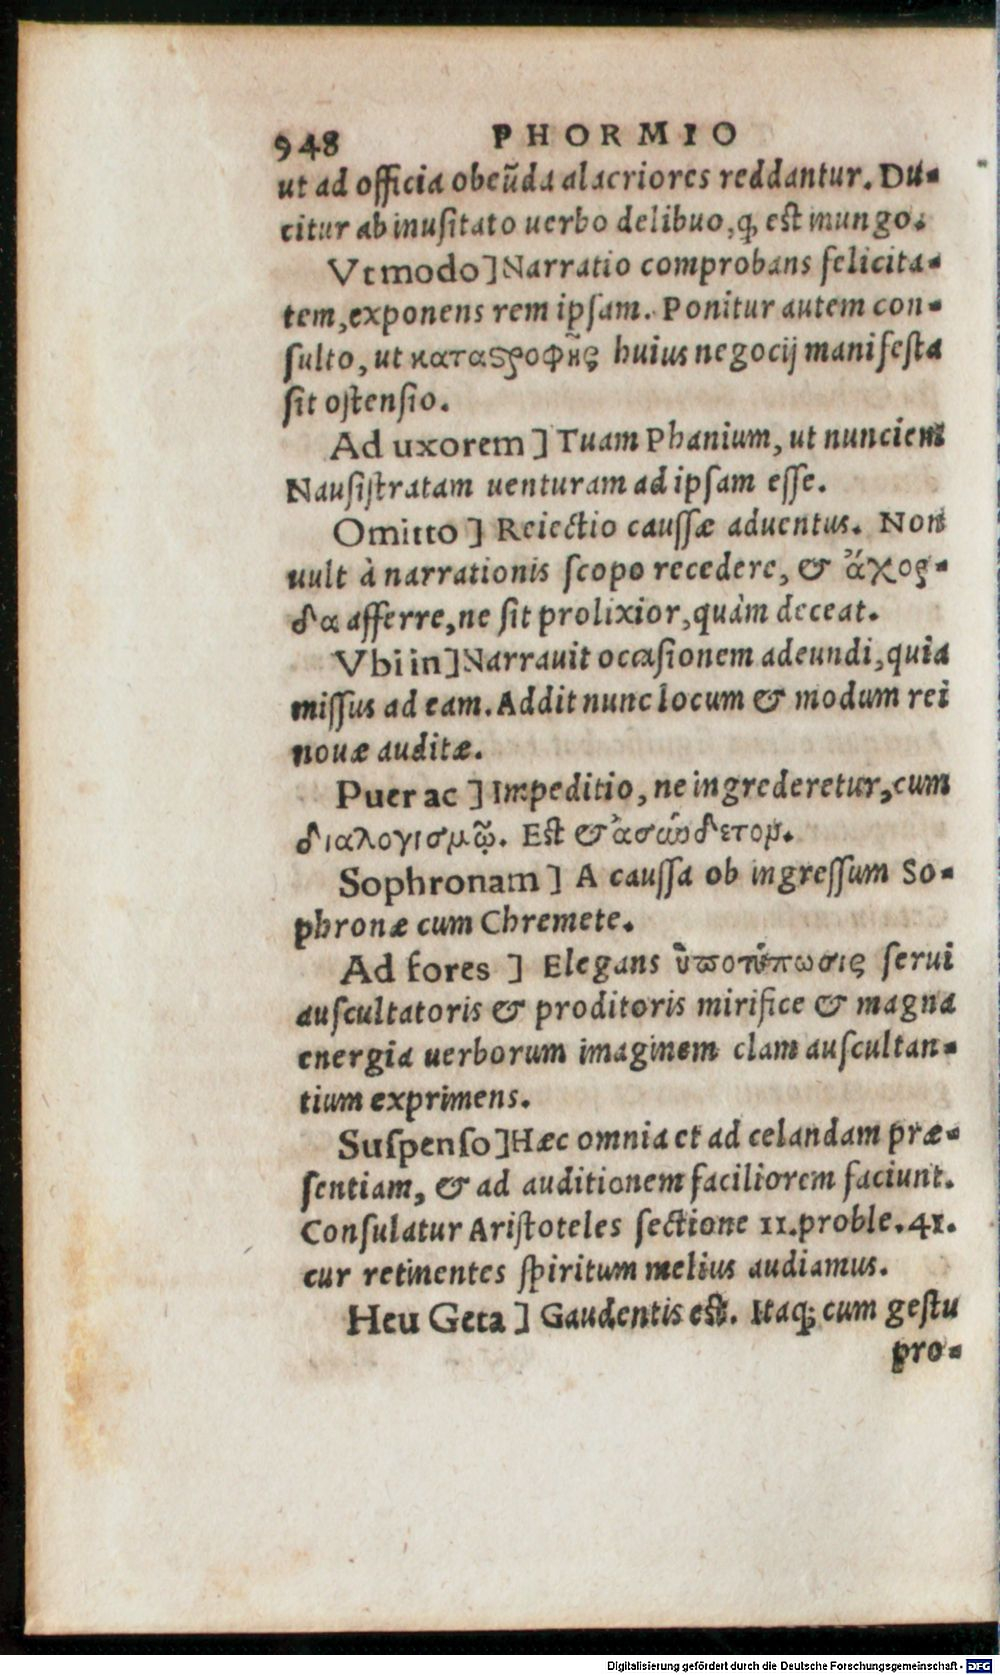 948 PHORMIO
ut ad officia obeũda alacriores reddantur. Du-
citur ab inusitato uerbo delibuo, q̨ est inungo.
Vt modo] Narratio comprobans felicita-
tem, exponens rem ipsam. Ponitur autem con-
sulto, ut καταϛροφῆς huius negocij manifesta
sit ostensio.
Ad uxorem] Tuam Phanium, ut nunciem
Nausistratam uenturam ad ipsam esse.
Omitto] Reiectio caussæ aduentus. Non
uult à narrationis scopo recedere, & ἄχος-
δα afferre, ne sit prolixior, quàm deceat.
Vbi in] Narrauit occasionem adeundi, quia
missus ad eam. Addit nunc locum & modum rei
nouæ auditæ.
Puer ac] Impeditio, ne ingrederetur, cum
διαλογισμῷ. Est & ἀσύνδετομ.
Sophronam] A caussa ob ingressum So-
phronæ cum Chremete.
Ad fores] Elegans ὑποτύπωσις serui
auscultatoris & proditoris mirifice & magna
energia uerborum imaginem clam auscultan-
tium exprimens.
Suspenso] Hæc omnia et ad celandam præ-
sentiam, & ad auditionem faciliorem faciunt.
Consulatur Aristoteles sectione 11. proble. 41.
cur retinentes spiritum melius audiamus.
Heu Geta] Gaudentis est. Itaq; cum gestu
pro-
Digitalisierung gefördert durch die Deutsche Forschungsgemeinschaft - DFG